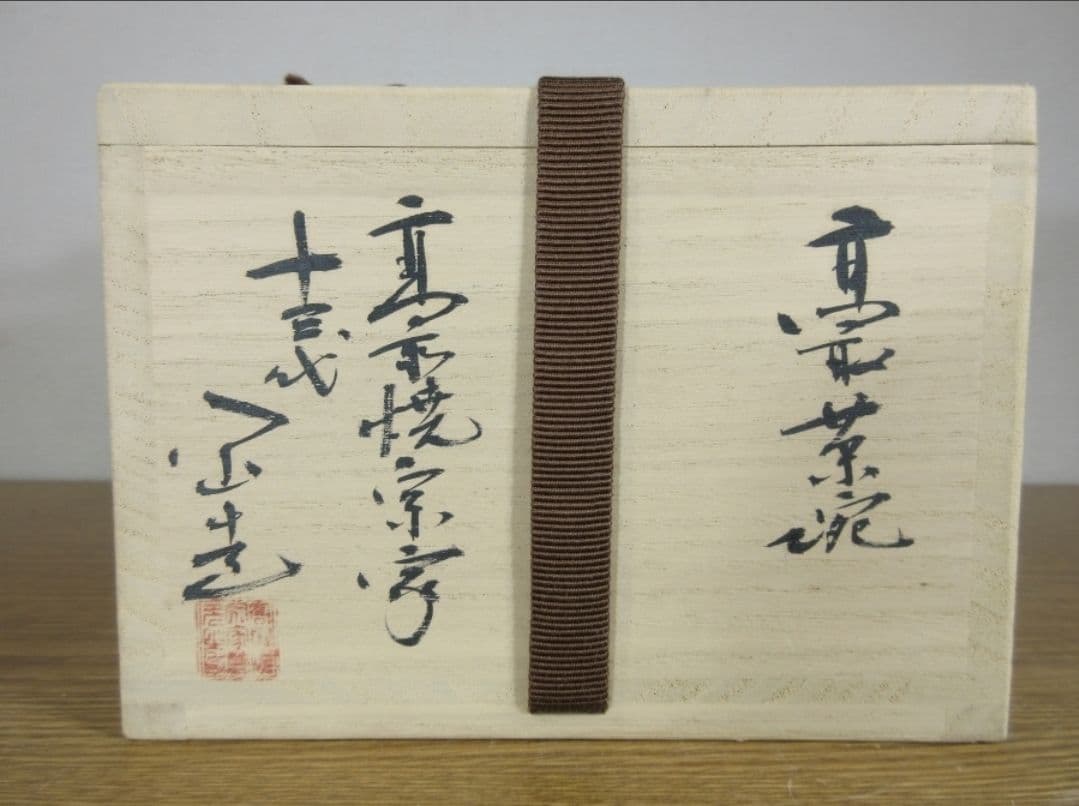 高取茶碗
高取焼宗家
十三代
八山造